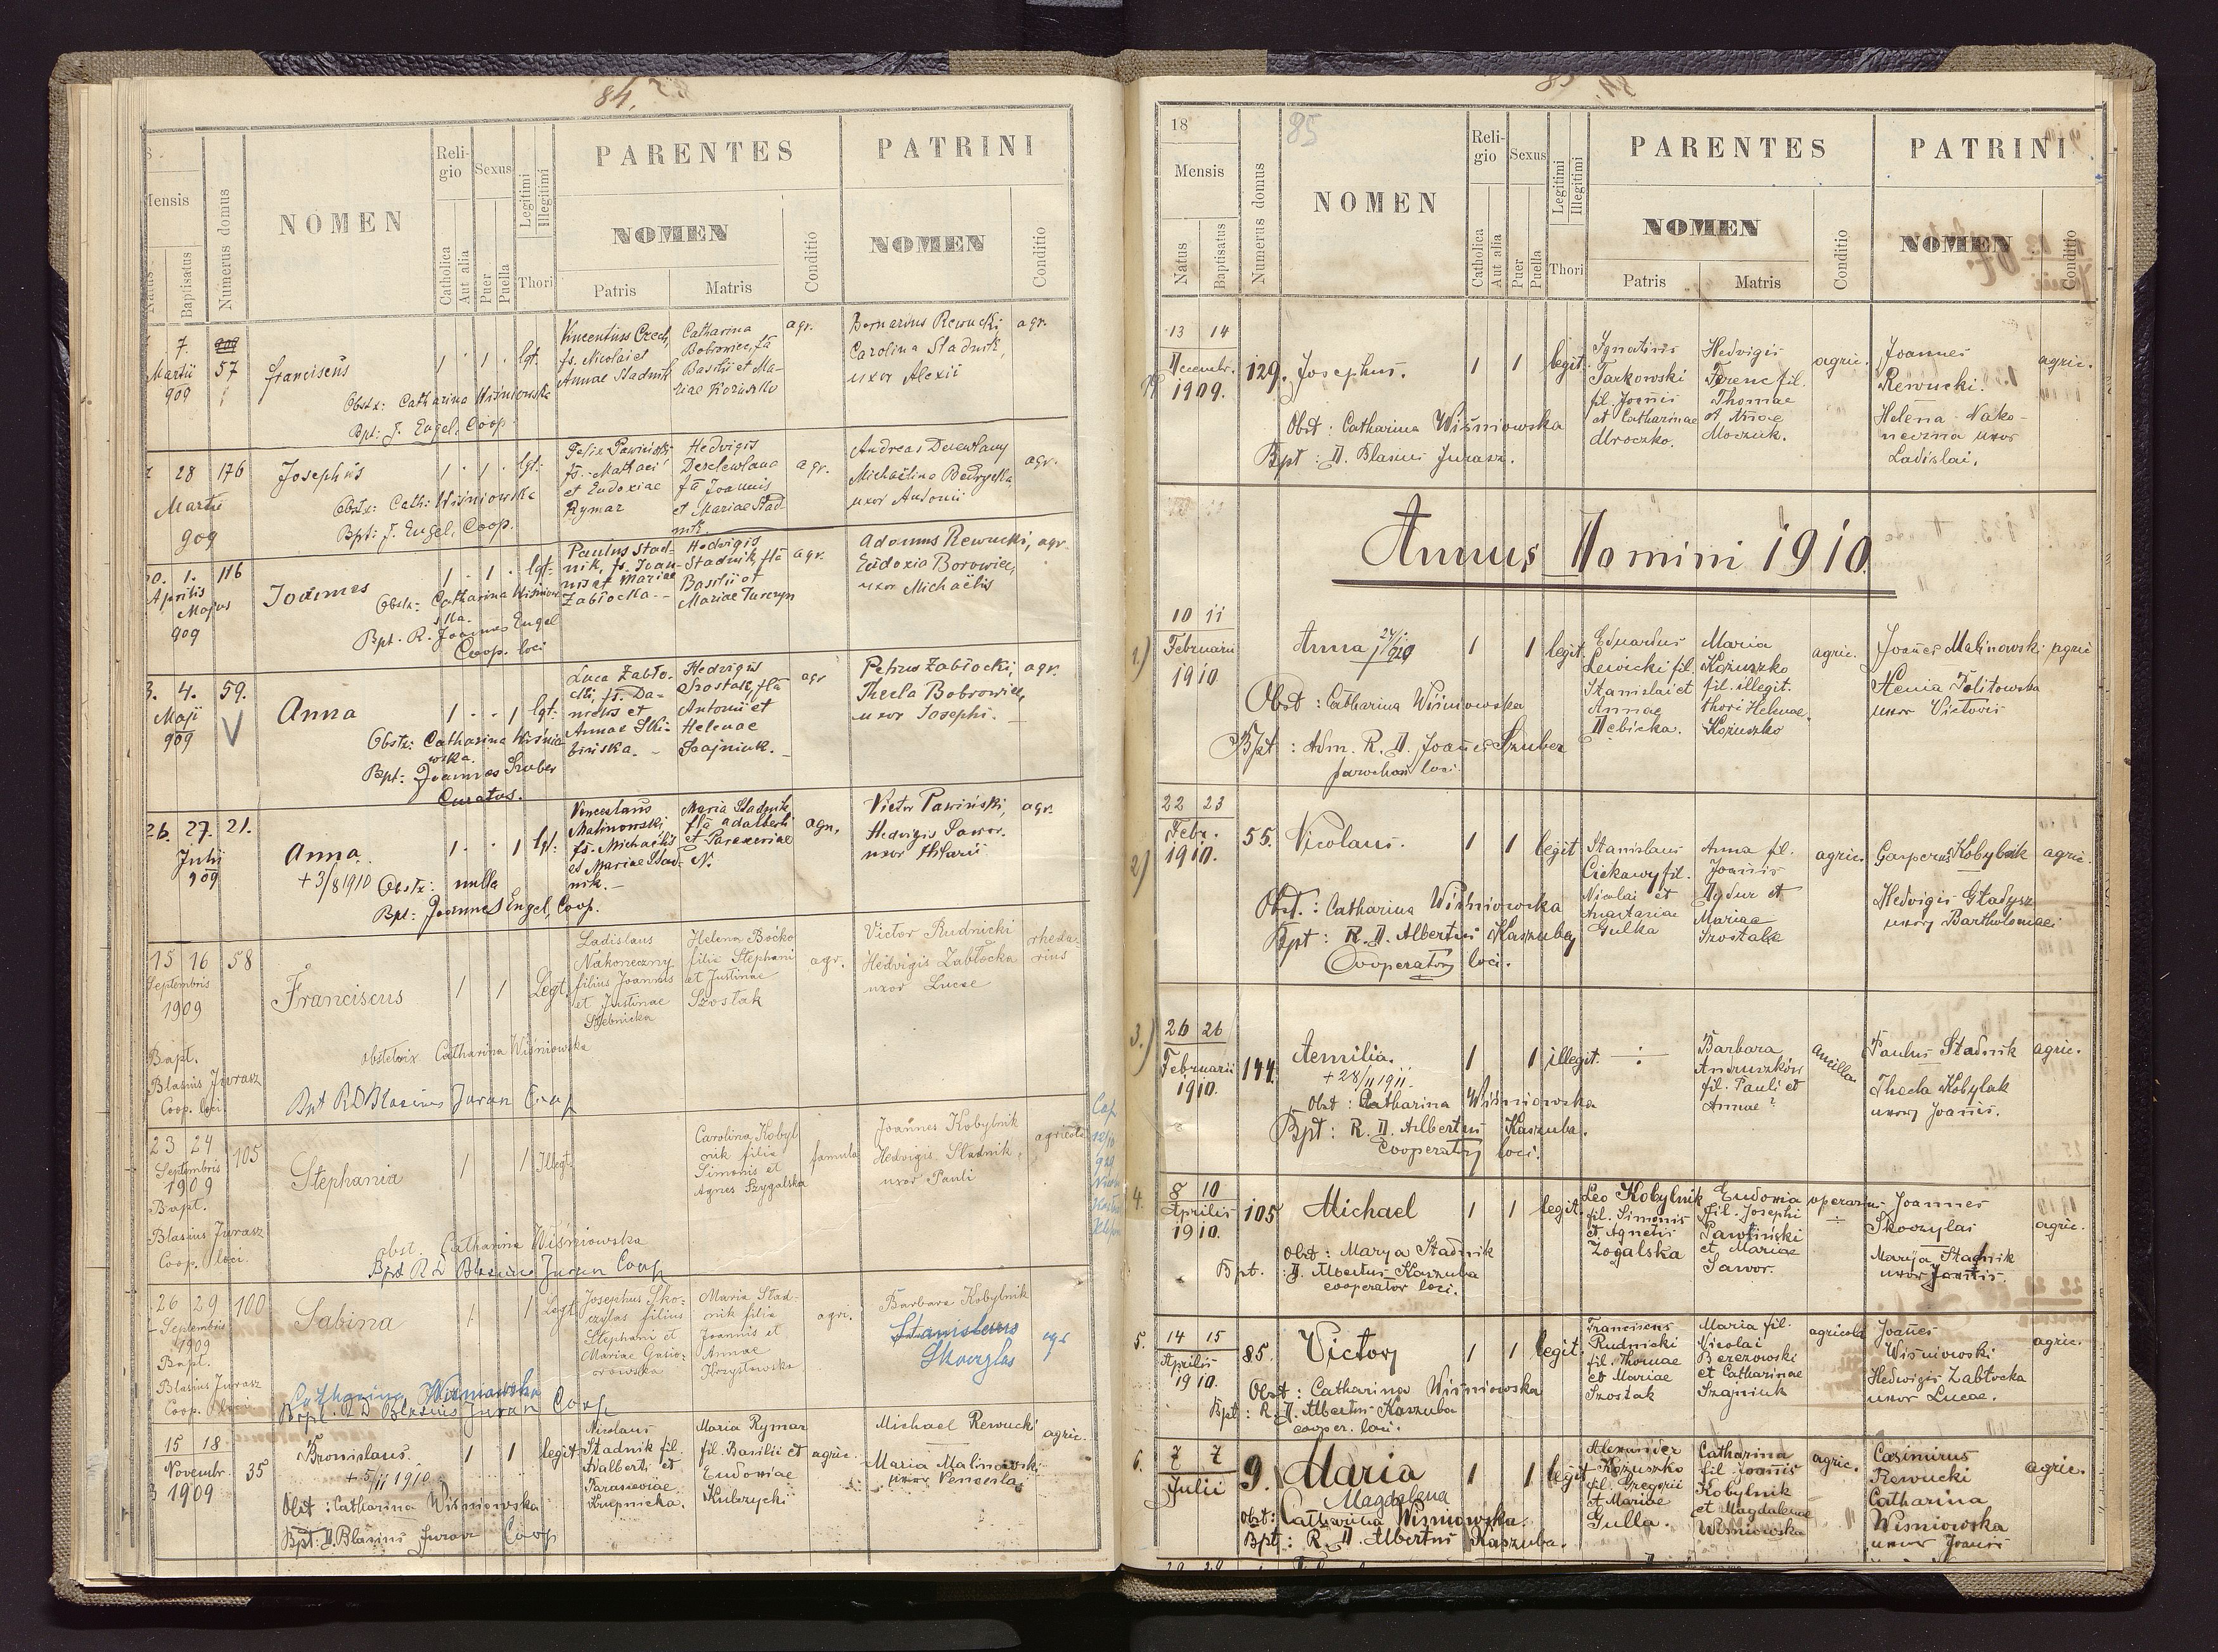 84.
Mensis
Natus
Baptisatus
Numerus domus
NOMEN
Religio
Catholica
Aut alia
Sexus
Puer
Puella
Legitimi
Illegitimi
Thori
PARENTES
NOMEN
Patris
Matris
Conditio
PATRINI
NOMEN
Conditio
7.
Martii
909
57
Franciscus
1 . 1 . lgt.
Obstx: Catharina Wiśniowska
Bpt: J. Engel, Coop.
Vincentius Czech,
fs. Nicolai et
Annae Stadnik
Catharina
Bobrowiec, fa
Basilii et Ma-
riae
agr.
Bernardus Rewucki,
Carolina Stadnik,
uxor Alexii
agr.
28
Martii
909
176
Josephus
1 . 1 . lgt.
Obstx: Cath: Wiśniowska
Bpt: J. Engel, Coop.
Felix Pawiński
fs. Mathaei
et Eudoxiae
Rymar
Hedvigis
fa Joannis
et Mariae Stad-
nik
agr.
Andreas
Michaelina
uxor Antonii
agr.
1.
Aprilis
Majus
909
116
Joannes
1 . 1 . lgt.
Obstx: Catharina Wiśniow-
ska.
Bpt. R. Joannes Engel
Coop. loci
Paulus Stad-
nik, fs. Joan-
nis et Mariae
Zabłocka -
Hedvigis
Stadnik, fła
Basilii et
Mariae Turczyn
agr.
Adamus Rewucki,
Eudoxia Borowiec,
uxor Michaëlis
agr.
3. 4.
Maji
909
59.
V
Anna
1 . . 1 lgt.
Obstx: Catharina Wiśnio-
wska.
Bpt: Joannes Szuber
Curatus.
Luca Zabło-
cki fs. Da-
nielis et
Annae Ski-
bińska. -
Hedvigis
Szostak, fła
Antonii et
Helenae
Szajniuk. -
agr
Petrus Zabłocki,
Thecla Bobrowiec,
uxor Josephi. -
agr.
26. 27.
Julii
909
21.
Anna
+ 3/8 1910
1 . . 1 lgt.
Obstx: nulla
Bpt: Joannes Engel, Coop.
Venceslaus
Malinowski
fs. Michaëlis
et Mariae Stad-
nik. -
Maria Stadnik
fła Adalberti
et Parasceviae
N.
agr.
Victor Pawiński,
Hedvigis Sawor.
uxor Hilarii
agr.
15 16
Septembris
1909
58
Franciscus
1 1 Legt.
Bapt.
Blasius Jurasz
Coop. loci.
obstetrix Catharina Wiśniowska
Bpt R D Blasius Jurasz Coop
Ladislaus
Nakoneczny
filius Joannis
et Justinae
Stebnicka
Helena Boćko
filia Stephani
et Justinae
Szostak
agr.
Victor Rudnicki
Hedvigis Zabłocka
uxor Lucae
rheda-
rius
23 24
Septembris
1909
105
Stephania
1 1 Illegt.
Bapt.
Blasius Jurasz
Coop. loci.
obst. Catharina Wiśniowska
Bpt R D Blasius Jurasz Coop
Carolina Kobyl
nik filia
Simonis et
Agnes Szygalska
famula
Joannes Kobylnik
Hedvigis Stadnik,
uxor Pauli
agricola
26 29
Septembris
1909
100
Sabina
1 1 Legt
Bapt.
Blasius Jurasz
Coop. loci
Catharina Wiśniowska
Bapt. R D Blasius Jurasz Coop
Josephus Sko-
czylas filius
Stephani et
Mariae Gasio-
rowska
Maria Stad-
nik filia
Joannis et
Annae
Krzystowska
agri.
Barbara Kobylnik
Stanislaus
Skoczylas
agr
15 18
Novembr.
1909
35
Bronislaus.
+ 5/11 1910
1 1 legit
Obst: Catharina Wiśniowska
Bpt: D. Blasius Jurasz Coop
Nicolaus
Stadnik fil.
Adalberti et
Parasceviae
Krupnicka.
Maria Rymar
fil. Basilii et
Eudoxiae
Kubrycki
agric.
Michael Rewucki
Maria Malinowski
uxor Venceslai
agric.
85
18
Mensis
Natus
Baptisatus
Numerus domus
NOMEN
Religio
Catholica
Aut alia
Sexus
Puer
Puella
Legitimi
Illegitimi
Thori
PARENTES
NOMEN
Patris
Matris
Conditio
PATRINI
NOMEN
Conditio
13 14
Decembr.
1909.
129.
Josephus.
1 1 legit.
Obst: Catharina Wiśniowska
Bpt: D. Blasius Jurasz.
Ignatius
Tarkowski
fil. Joannis
et Catharinae
Mroczko.
Hedvigis
Ferenc fil.
Thomae
et Annae
Moczuk.
agric.
Joannes
Rewucki.
Helena Nako-
neczna uxor
Ladislai.
agric.
Annus Domini 1910.
1.)
10 11
Februarii
1910
Anna
1 1 legit.
Obst: Catharina Wiśniowska
Bpt: Adm. R. D. Joannes Szuber
parochus loci.
Eduardus
Lewicki fil.
Stanislai et
Annae
Dębicka.
Maria
Kożuszko
fil. illegit.
thori Helenae
Kożuszko
agric.
Joannes Malinowski
Xenia Politowska
uxor Victoris
agric
2)
22 23
Febr.
1910.
55.
Nicolaus.
1 1 legit
Obst.: Catharina Wiśniowska
Bpt: R. D. Albertus Kaszuba
Cooperator loci.
Stanislaus
Ciekawy fil.
Nicolai et
Anastasiae
Gulka
Anna fil.
Joannis
Dydur et
Mariae
Szostak
agric.
Gasperus Kobylak
Hedvigis Gładysz
uxor Bartholomaei
agric.
3.)
26 26
Februarii
1910.
144.
Aemilia.
+ 28/11 1911.
1 1 illegit.
Obst: Catharina Wiśniowska
Bpt: R. D. Albertus Kaszuba.
Cooperator loci.
Barbara
Andruszków
fil. Pauli et
Annae?
ancilla
Paulus Stadnik
Thecla Kobylak
uxor Joannis.
agric.
4.
8 10
Aprilis
1910.
105
Michael
1 1 legit.
Obst: Marya Stadnik
Bpt.: D. Albertus Kaszuba
cooperator loci.
Leo Kobylnik
fil. Simonis
et Agnetis
Zogalska
Eudoxia
fil. Josephi
Pawliński
et Mariae
Sawor.
operarius
Joannes
Skoczylas
Marya Stadnik
uxor Joannis
agric.
5.
14 15
Aprilis
1910.
85.
Victor
1 1 legit.
Obst: Catharina Wiśniowska
Bpt: R. D. Albertus Kaszuba
cooper. loci.
Franciscus
Rudnicki
fil. Thomae
et Mariae
Szostak
Maria fil.
Nicolai
Berezowski
et Catharinae
Szajniuk
agricola
Joannes
Wiśniowski
Hedwigis Zabłocka
uxor Lucae.
agric.
6.
7 7
Julii
9.
Maria
Magdalena
1 1 legit
Obst: Catharina Wiśniowska.
Bpt: R. D. Albertus Kaszuba.
Alexander
Kożuszko
fil. Gregorii
et Mariae
Gulla.
Catharina
fil Joannis
Kobylnik
et Magdalenae
Wiśniowska
agric.
Casimirus
Rewucki
Catharina
Wiśniowska
uxor Joannis
agric.